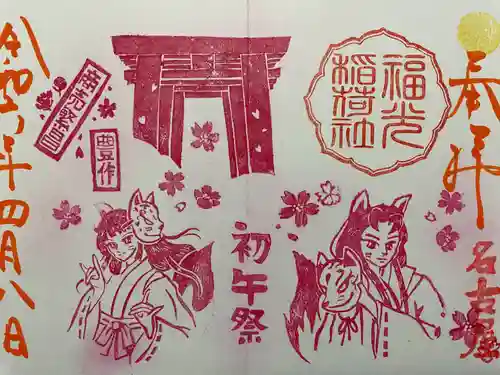 奉拝
名古屋
福光
稲荷社
初午祭
商売繁昌
豊作
令和 年四月八日